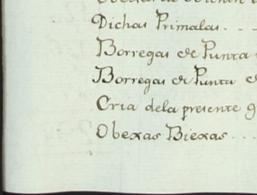 Dichas Primalas . . .
Borregas de Punta
Borregas de Punta
Cria dela presente
Obexas Biexas . . .